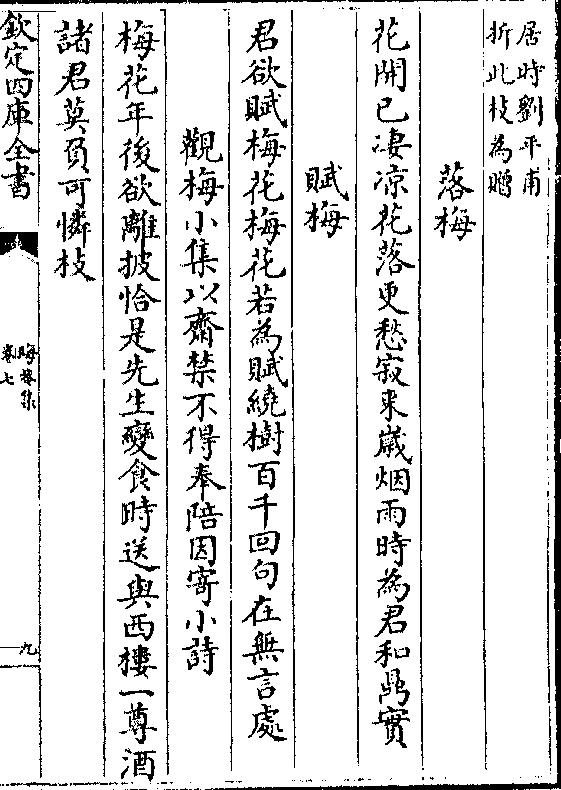 居時劉平甫
折此枝為贈
落梅
花開已凄凉花落更愁寂來嵗烟雨時為君和鼎實
賦梅
君欲賦梅花梅花若為賦繞樹百千回句在無言處
觀梅小集以齋禁不得奉陪因寄小詩
梅花年後欲離披恰是先生變食時送與西樓一尊酒
諸君莫負可憐枝
欽定四庫全書
晦菴集
卷七
九